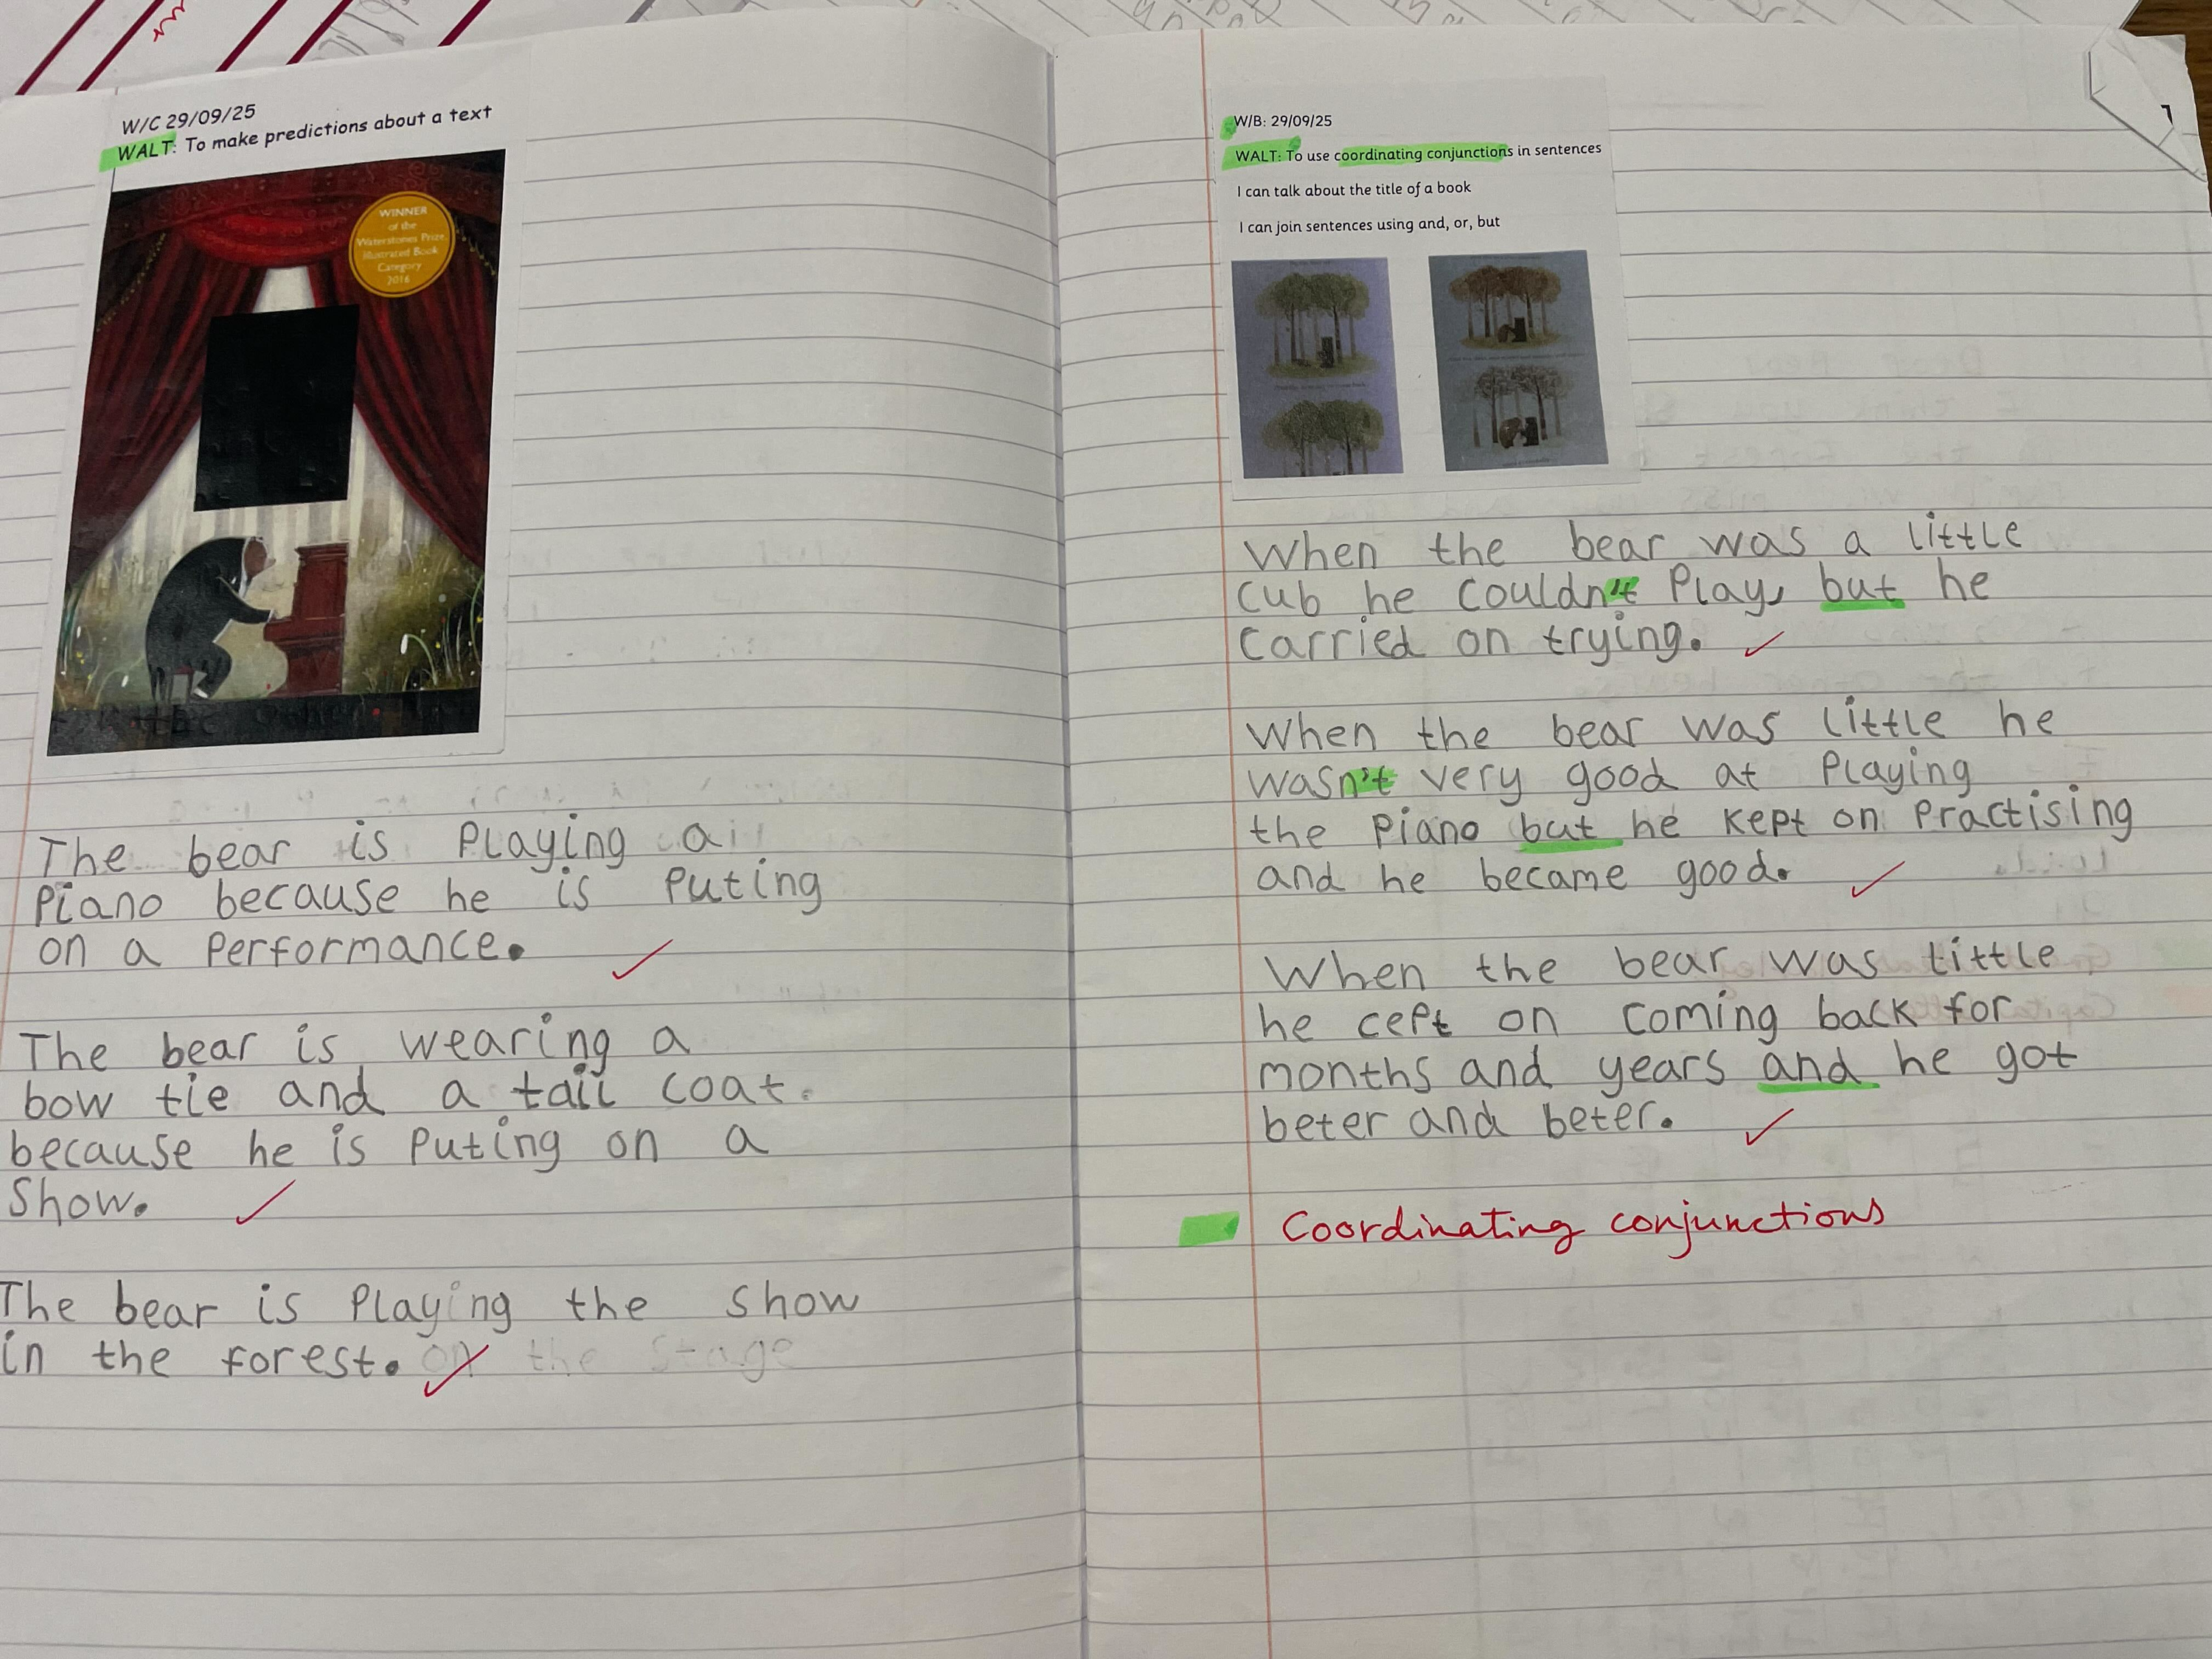 W/C 29/09/25
WALT: To make predictions about a text
WINNER
of the
Waterstones Prize
Illustrated Book
Category
2016
The bear is Playing a
Piano because he is Puting
on a Performance.
The bear is wearing a
bow tie and a tail coat.
because he is Puting on a
Show.
The bear is Playing the Show
in the forest. on the stage
W/B: 29/09/25
WALT: To use coordinating conjunctions in sentences
I can talk about the title of a book
I can join sentences using and, or, but
When the bear was a little
Cub he Couldn't Play, but he
Carried on trying.
When the bear was little he
wasn't very good at Playing
the Piano but he kept on Practising
and he became good.
When the bear was little
he cept on Coming back for
months and years and he got
beter and beter.
Coordinating conjunctions